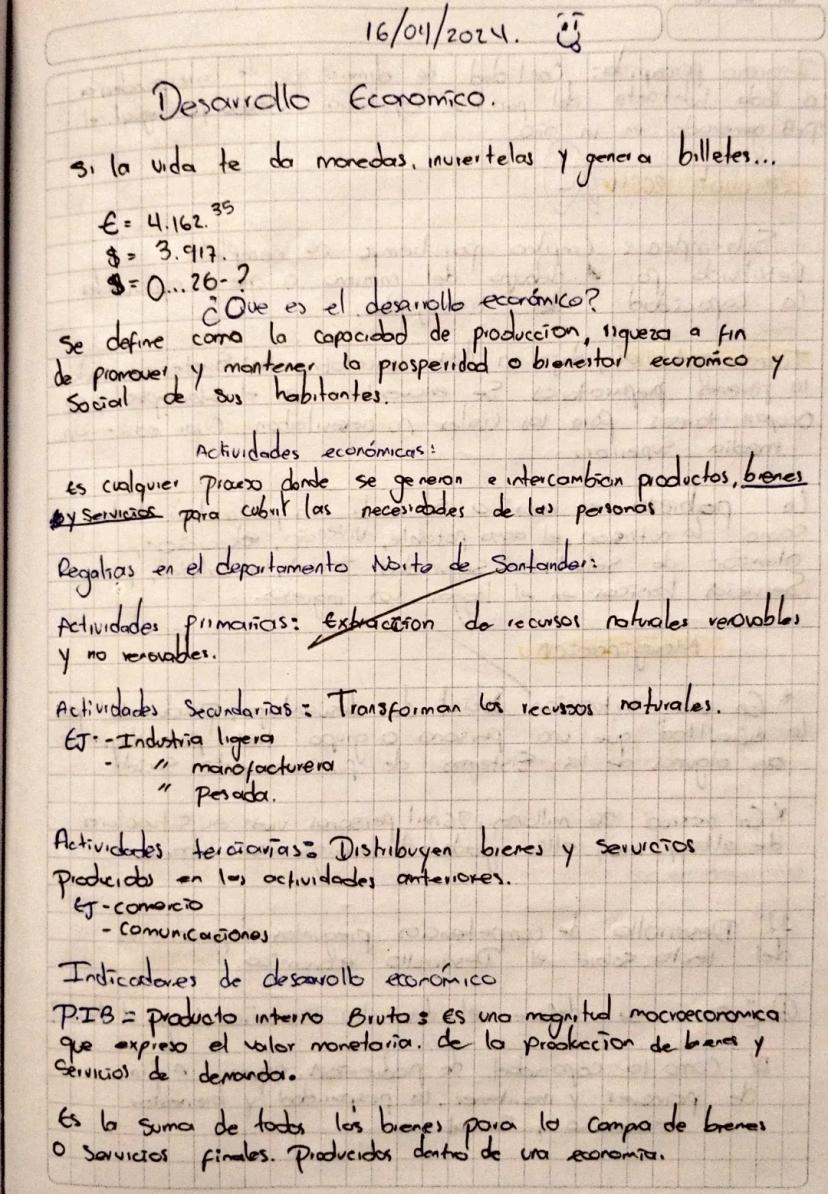 16/04/2024.
Desarrollo Economico.
Si la vida te da monedas, inviertelas y genera billetes...
€ = 4.162.35
$ = 3.917.
$ = 0...26-?
¿Que es el desarrollo económico?
Se define como la capacidad de produccion, riqueza a fin
de promover y mantener la prosperidad o bienestar economico y
Social de sus habitantes.
Actividades económicas:
Es cualquier proceso donde se generan e intercambian productos, bienes
y servicios para cubrir las necesidades de las personas
Regalias en el departamento Norte de Santander:
Actividades primarias: Extraccion de recursos naturales renovables
y no renovables.
Actividades Secundarias: Transforman los recursos naturales.
EJ: - Industria ligera
- " manofacturera
" Pesada.
Actividades terciarias: Distribuyen bienes y servicios
Producidos en las actividades anteriores.
EJ - comercio
- Comunicaciones
Indicadores de desarrollo económico
P.IB = Producto interno Bruto: es una magnitud macroeconomica
que expresa el valor monetaria. de la produccion de bienes y
Servicios de demanda.
Es la suma de todos los bienes para la compa de bienes
o Servicios finales. Producidos dentro de una economia.